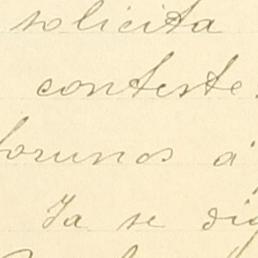 solicita
conteste.
forunos a
Ya se dig